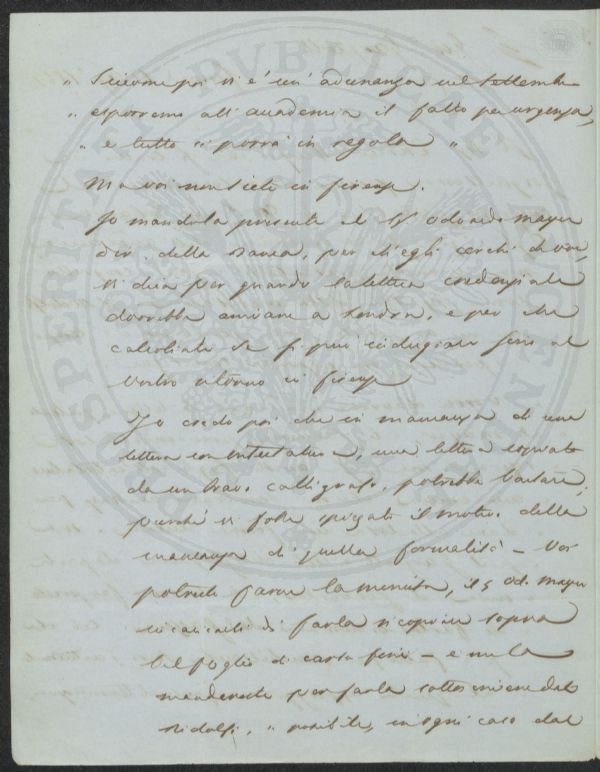 " Siccome poi vi è un' adunanza nel settembre
" esporremo all' accademia il fatto per urgenza,
" e tutto si porrà in regola "
Ma voi non siete in Firenze.
Io mando la presente al Sr. Odoardo Mayer
dir. della Banca, perch' egli cerchi di voi,
vi dica per quando la lettera credenziale
dovrebbe arrivare a Londra, e perchè
calcoliate se si può indugiare fino al
vostro ritorno in Firenze
Io credo poi che in mancanza di una
lettera con intestatura, una lettera copiata
da un bravo calligrafo, potrebbe bastare;
purchè vi fosse spiegato il motivo della
mancanza di quella formalità – Voi
potreste farne la minuta, il S Od. Mayer
incaricarsi di farla ricopiare sopra
bel foglio di carta fine – e me la
manderete per farla sottoscrivere dal
Ridolfi, se possibile, in ogni caso dal
PROSPERITATI PUBLICAE AUGENDAE